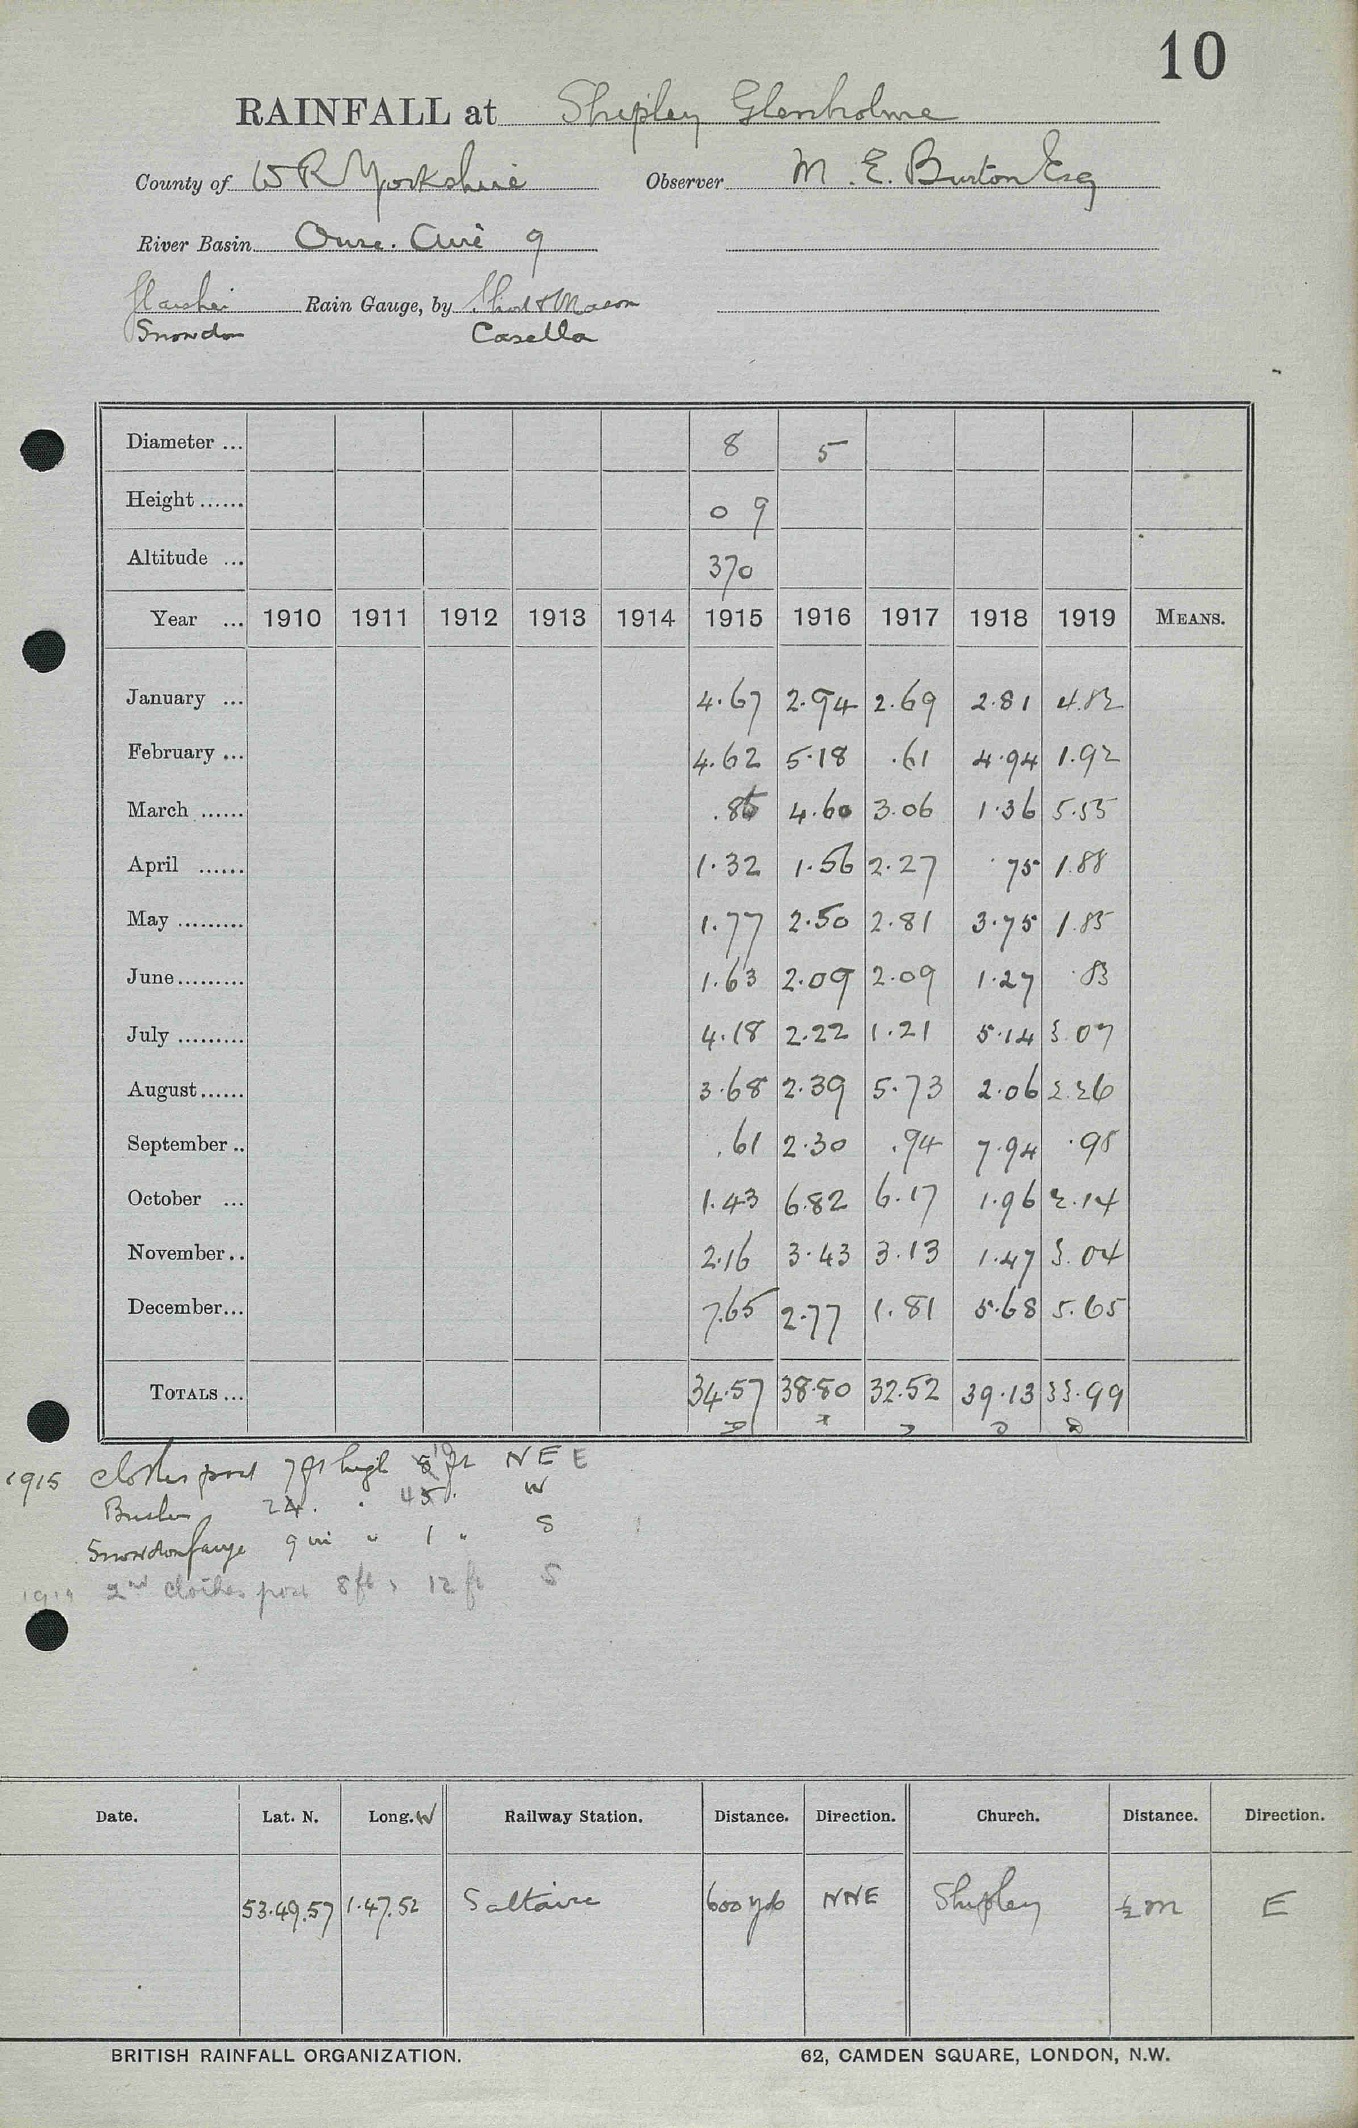 10
RAINFALL at Shipley Glenholme
County of W R Yorkshire Observer M. E. Burton Esq
River Basin Ouse. Aire 9
Glaisher Rain Gauge, by Short & Mason
Snowdon Casella
Diameter ... 8 5
Height ...... 0 9
Altitude ... 370
Year ... 1910 1911 1912 1913 1914 1915 1916 1917 1918 1919 MEANS.
January ... 4.67 2.94 2.69 2.81 4.82
February ... 4.62 5.18 .61 4.94 1.92
March ...... .85 4.60 3.06 1.36 5.55
April ...... 1.32 1.56 2.27 .75 1.88
May ......... 1.77 2.50 2.81 3.75 1.85
June ......... 1.63 2.09 2.09 1.27 .83
July ......... 4.18 2.22 1.21 5.14 3.07
August ...... 3.68 2.39 5.73 2.06 2.26
September .. .61 2.30 .94 7.94 .98
October ... 1.43 6.82 6.17 1.96 2.14
November .. 2.16 3.43 3.13 1.47 3.04
December ... 7.65 2.77 1.81 5.68 5.65
TOTALS ... 34.57 38.80 32.52 39.13 33.99
1915 clothes post 7 ft high ft NE E
Bushes W
Snowdon gauge 9 in " 1 " S
2nd clothes post 8 ft 12 ft S
Date. Lat. N. Long. W Railway Station. Distance. Direction. Church. Distance. Direction.
53.49.57 1.47.52 Saltaire 600 yds NNE Shipley ½ m E
BRITISH RAINFALL ORGANIZATION. 62, CAMDEN SQUARE, LONDON, N.W.